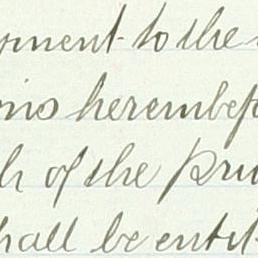 yment to the
ns hereinbefo
h of the pri
hall be entit